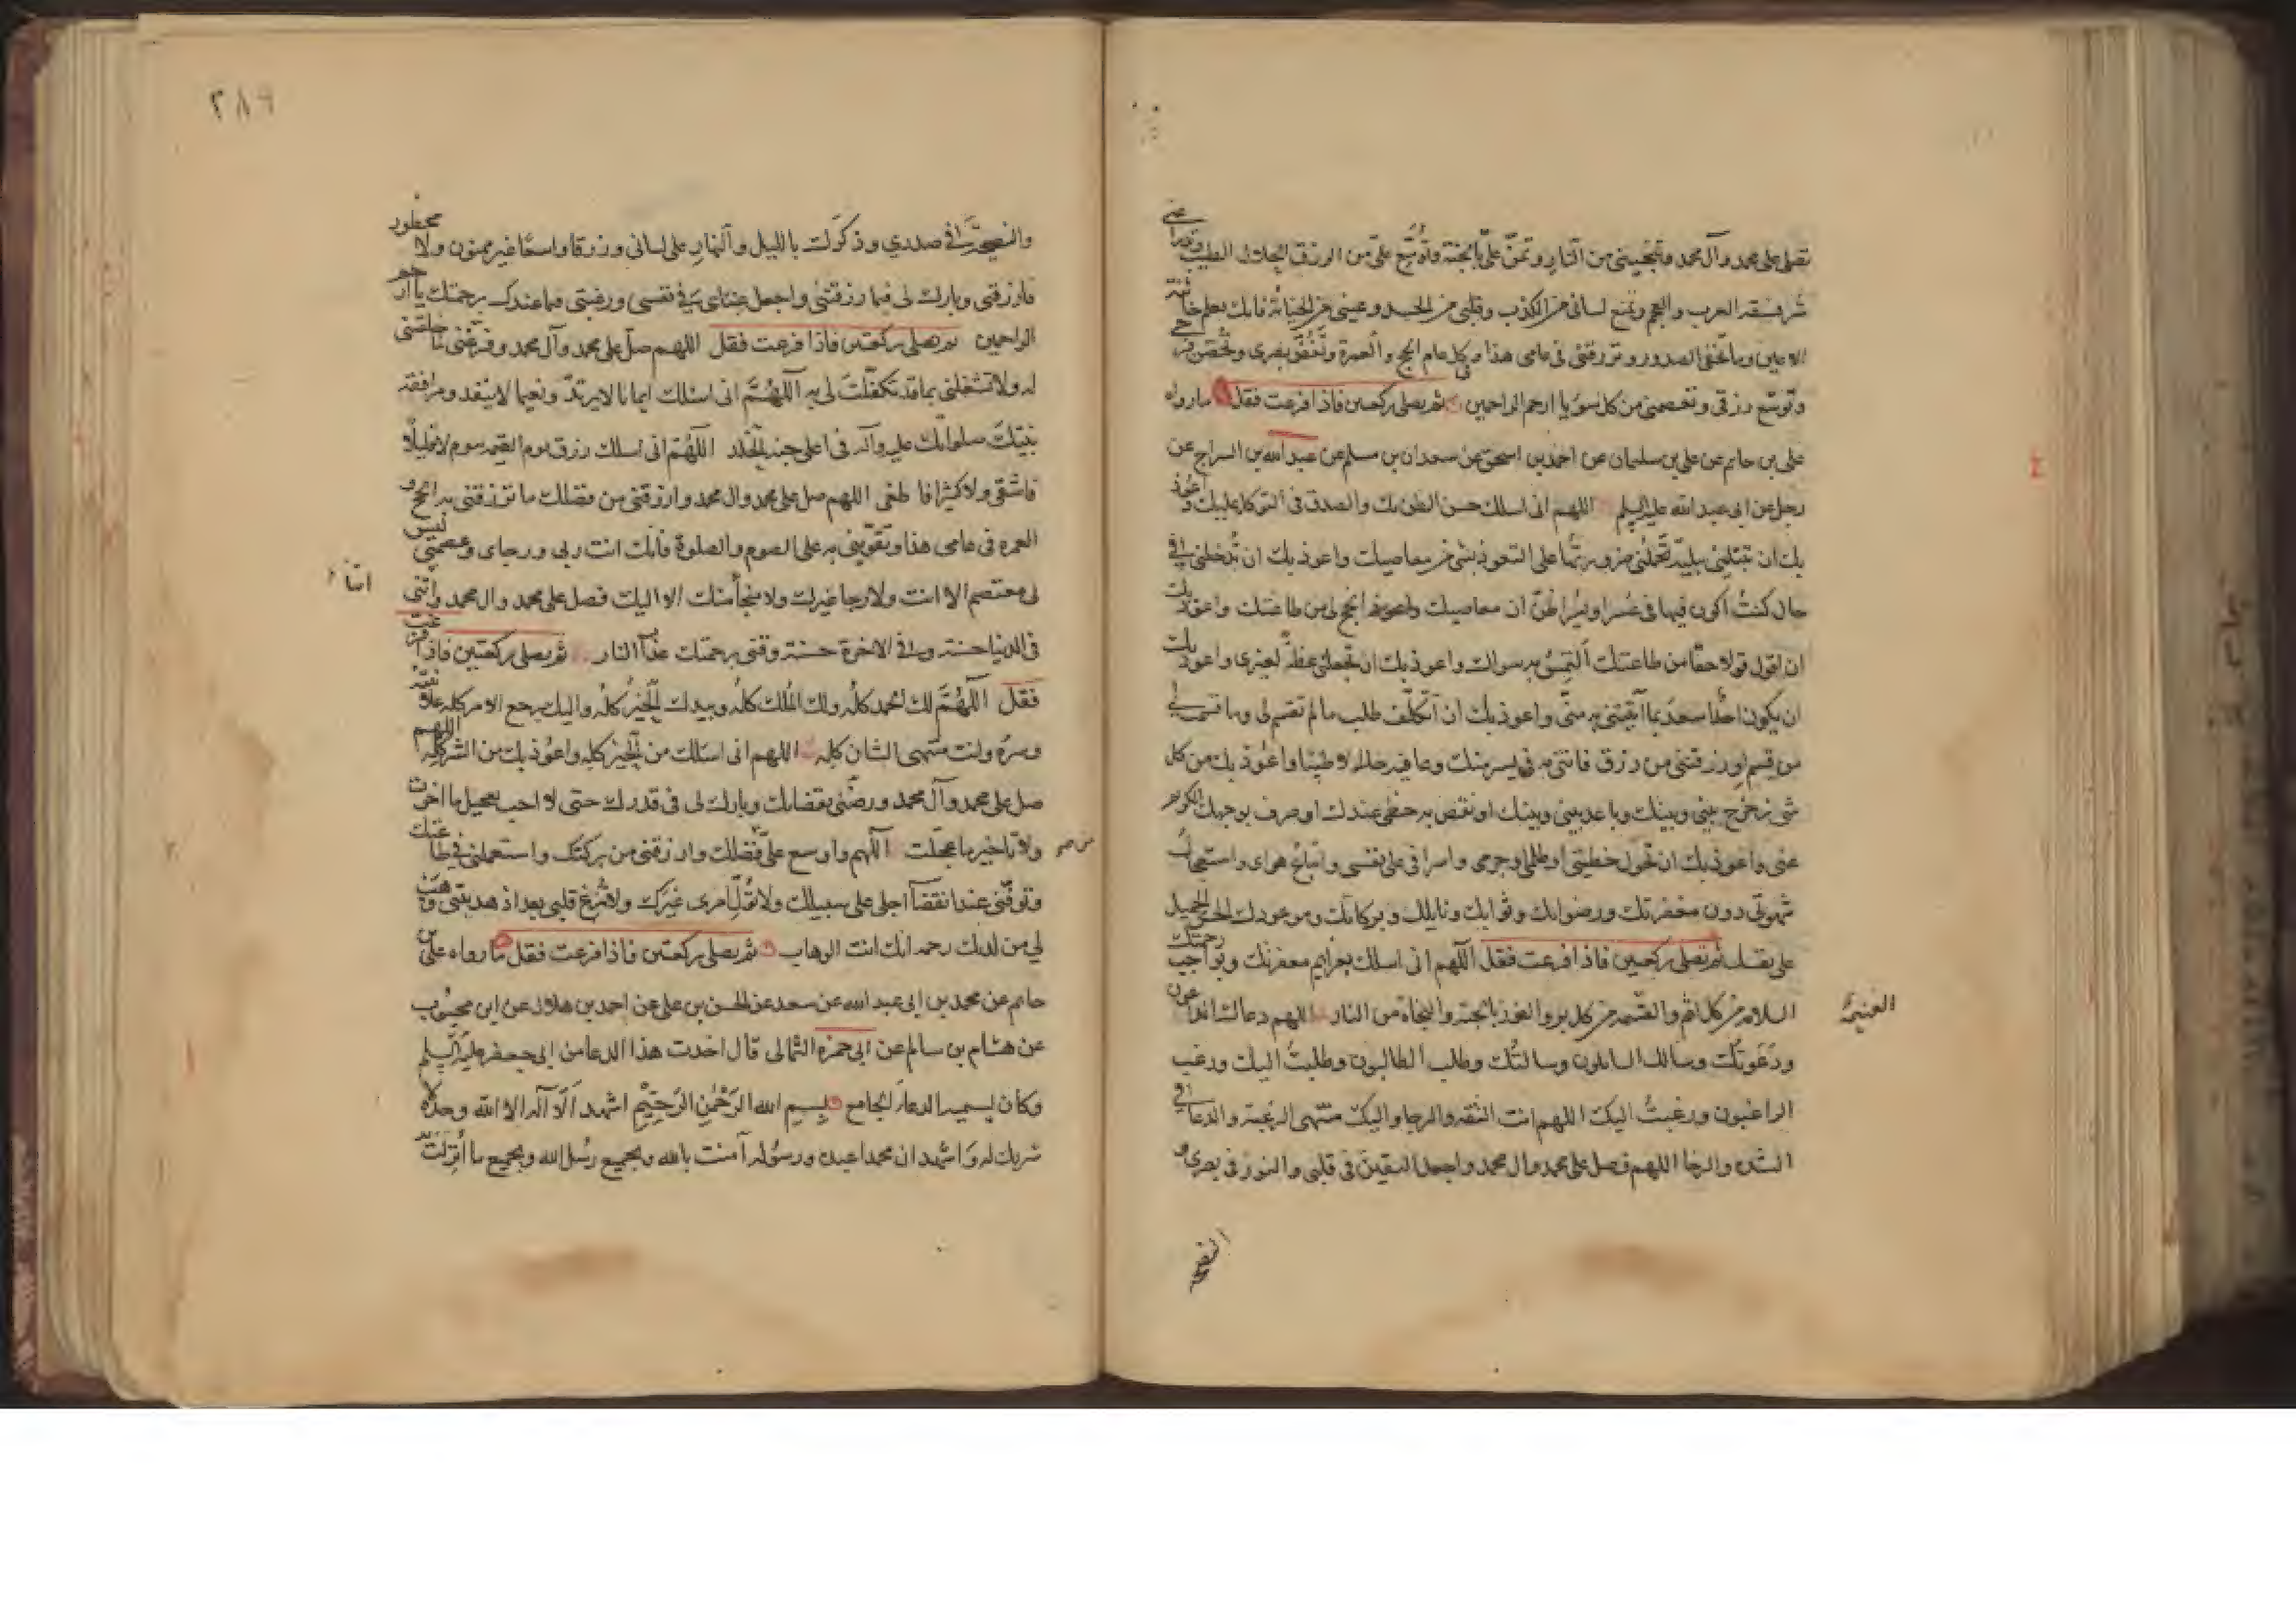 تصلى على محمد وآل محمد وتنجينى من النار وتمنّ علىّ بالجنة وتوسّع علىّ من الرزق الحلال الطيب وتدرأ عنى
شر فسقه العرب والعجم وتمنع لسانى من الكذب وقلبى من الحسد وعينى من الخيانة فانك تعلم خائنة
الاعين وما تخفى الصدور وترزقنى فى عامى هذا وفى كل عام الحج والعمرة وتغضّ بصرى وتحصّن فرجى
وتوسّع رزقى وتعصمنى من كل سوء يا ارحم الراحمين ثم يصلى ركعتين فاذا فرغت فقل ما رواه
على بن حاتم عن على بن سليمان عن احمد بن اسحق عن سعدان بن مسلم عن عبد الله بن السراج عن
رجل عن ابى عبد الله عليه السلم اللهم انى اسئلك حسن الظن بك والصدق فى التوكل عليك واعوذ
بك ان تبتلينى ببليّة تحملنى ضرورتها على التعوذ بشئ من معاصيك واعوذ بك ان تُدخلنى فى
حال كنتُ اكون فيها فى عُسر او يُسر اظنّ ان معاصيك انجح لى من طاعتك واعوذ بك
ان اقول قولا حقا من طاعتك التمِسُ به سواك واعوذ بك ان تجعلنى عظةً لغيرى واعوذ بك
ان يكون احدٌ اسعدَ بما آتيتنى به منّى واعوذ بك ان اتكلّف طلب ما لم تقسم لى وما قسمت لى
من قسم او رزقتنى من رزق فاتنى به فى يسر منك وعافيه حلالا طيبا واعُوذ بك من كل
شئ زحزح بينى وبينك وباعد بينى وبينك او نقص به حظى عندك او صرف بوجهك الكريم
عنى واعوذ بك ان تحول خطيئتى او ظلمى او جرمى واسرافى على نفسى واتباع هواى واستعجال
شهوتى دون مغفرتك ورضوانك وثوابك ونائلك وبركاتك وموعودك الحسن الجميل
على نفسك ثم تصلى ركعتين فاذا فرغت فقل اللهم انى اسئلك بعزايم مغفرتك وبواجب رحمتك
السلامه من كل اثم والغنيمه من كل بر والفوز بالجنة والنجاة من النار اللهم دعاك الداعون
ودَعَوتُك وسالك السائلون وسالتُك وطلب الطالبون وطلبتُ اليك ورغب
الراغبون ورغبتُ اليك اللهم انت الثقه والرجا واليك منتهى الرغبة والدعا فى
الشده والرخا اللهم فصل على محمد وال محمد واجعل اليقينَ فى قلبى والنور فى بصرى و
الغنيمة
النصيحة
٢٨٩
والنصيحةَ فى صدرى وذكرك بالليل والنهارِ على لسانى ورزقا واسعًا غير ممنون ولا محظور
فارزقنى وبارك لى فيما رزقتنى واجعل غناى فى نفسى ورغبتى فيما عندك برحمتك يا ارحم
الراحمين ثم يصلى ركعتين فاذا فرغت فقل اللهم صلّ على محمد وآل محمد وفرّغنى لما خلقتنى
له ولا تشغلنى بما قد تكفّلتَ لى به اللهُمَّ انى اسئلك ايمانا لا يرتدّ ونعيما لا ينفد ومرافقة
نبيّك صلواتك عليه وآله فى اعلى جنة الخُلد اللهُمّ انى اسئلك رزق يوم بيوم لا قليلًا
فاشقى ولا كثيرا فاطغى اللهم صل على محمد وال محمد وارزقنى من فضلك ما ترزقنى به الحج و
العمره فى عامى هذا وتقوّينى به على الصوم والصلوة فانك انت ربى ورجاى وعصمتى ليس
لى معتصم الا انت ولا رجا غيرك ولا منجأ منك الا اليك فصل على محمد وال محمد وآتنى
فى الدنيا حسنة وفى الاخرة حسنة وقنى برحمتك عذاب النار ثم يصلى ركعتين فاذا فرغت
فقل اللهُمَّ لك الحمد كلُّه ولك المُلك كلُّه وبيدك الخيرُ كلُّه واليك يرجع الامر كله علانيته
وسرّه وانت منتهى الشان كلِه اللهم انى اسئلك من الخير كلِه واعوُذ بك من الشر كلِه اللهم
صل على محمد وآل محمد ورضّنى بقضائك وبارك لى فى قدرك حتى لا احب تعجيل ما اخّرت
ولا تاخير ما عجّلت اللهم واوسع علىّ من فضلك وارزقنى من بركتك واستعملنى فى طاعتك
وتوفّنى عند انقضآ اجلى على سبيلك ولا تُولِّ امرى غيرَك ولا تُزِغ قلبى بعد اذ هديتنى وهَب
لي من لدنك رحمه انك انت الوهاب ثم يصلى ركعتين فاذا فرغت فقل ما رواه على بن
حاتم عن محمد بن ابى عبد الله عن سعد عن الحسن بن على عن احمد بن هلال عن ابن محبُوب
عن هشام بن سالم عن ابى حمزه الثمالى قال اخذت هذا الدعا من ابى جعفر عليه السلم
وكان يسميه الدعآ الجامع بِسمِ الله الرّحْمٰنِ الرّحِيْمِ اشهد اَلّا آله الا الله وحدَه لا
شريك له وَاشهد ان محمدا عبده ورسُوله آمنت بالله وبجميع رُسُل الله وبجميع ما اُنزِلَت